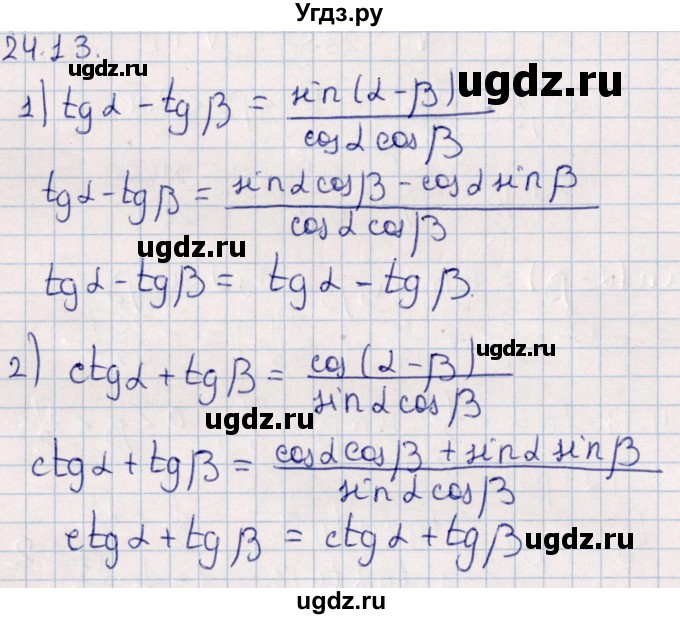 Угдз.ру
24.13.
ugdz.ru
1) tgα - tgβ = sin(α - β) / cosα cosβ
ugdz.ru
tgα - tgβ = sinα cosβ - cosα sinβ / cosα cosβ
ugdz.ru
tgα - tgβ = tgα - tgβ.
2) ctgα + tgβ = cos(α - β) / sinα cosβ
ugdz.ru
ugdz.ru
ctgα + tgβ = cosα cosβ + sinα sinβ / sinα cosβ
ugdz.ru
ctgα + tgβ = ctgα + tgβ
ugdz.ru
ugdz.ru